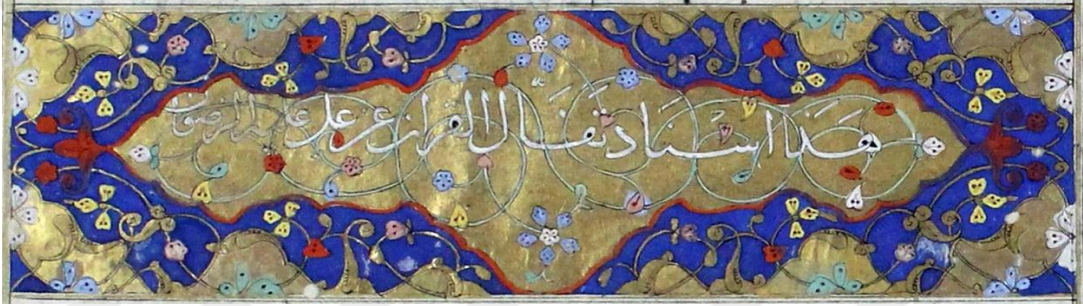 هَذَا اسْنَاد تَفَال القران عن على عليه الرضوان